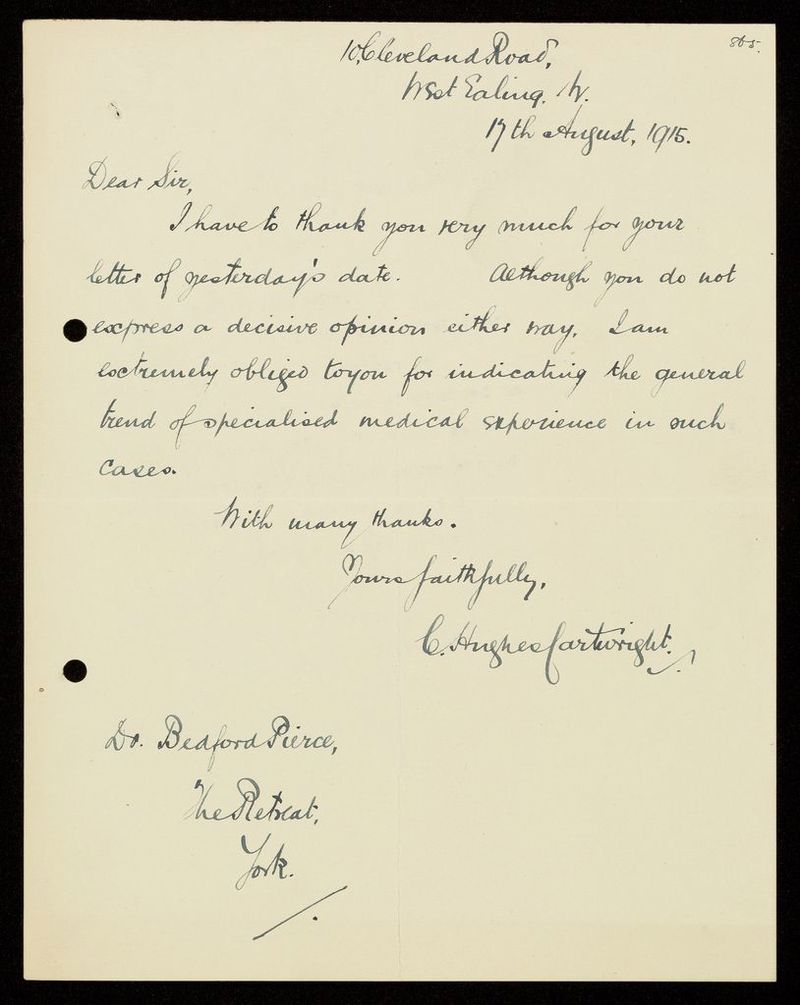 10, Cleveland Road,
West Ealing. W.
17th August, 1915.
Dear Sir,
I have to thank you very much for your
letter of yesterday's date. Although you do not
express a decisive opinion either way, I am
extremely obliged to you for indicating the general
trend of specialised medical experience in such
cases.
With many thanks.
Yours faithfully,
C. Hughes Cartwright.
Dr. Bedford Pierce,
The Retreat,
York.